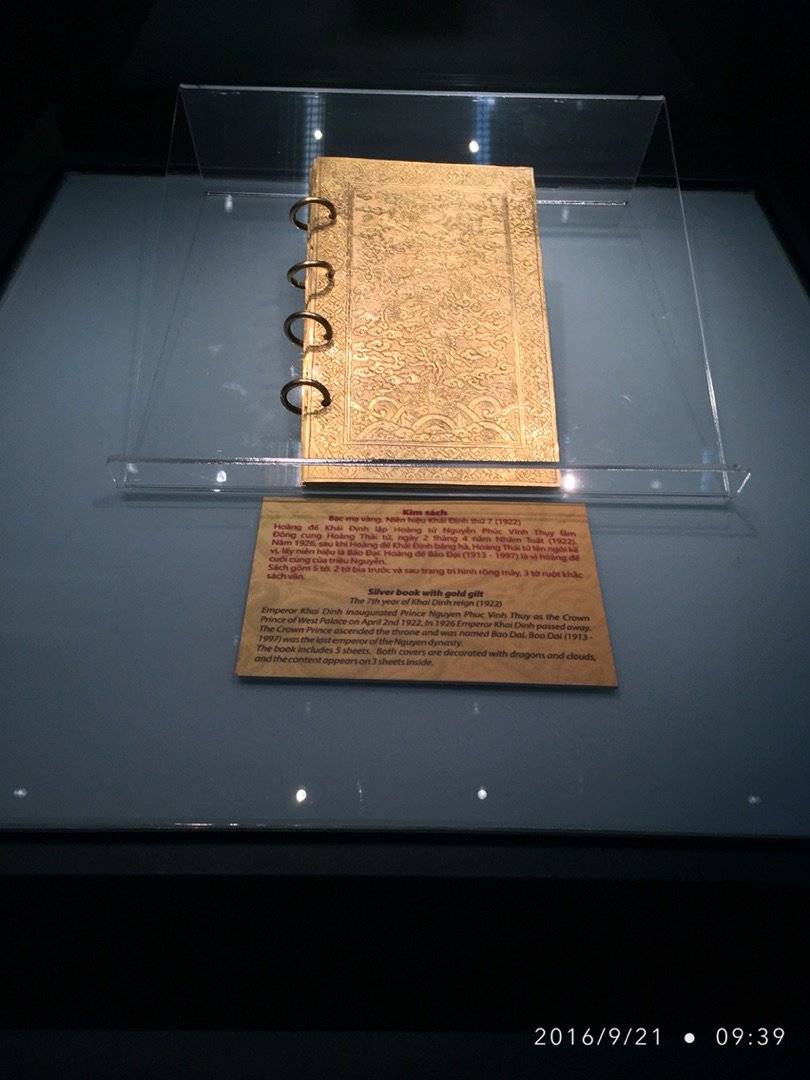 Kim sách
Bạc mạ vàng. Niên hiệu Khải Định thứ 7 (1922)
Hoàng đế Khải Định lập Hoàng tử Nguyễn Phúc Vĩnh Thụy làm
Đông cung Hoàng Thái tử, ngày 2 tháng 4 năm Nhâm Tuất (1922).
Năm 1926, sau khi Hoàng đế Khải Định băng hà, Hoàng Thái tử lên ngôi kế
vị, lấy niên hiệu là Bảo Đại. Hoàng đế Bảo Đại (1913 - 1997) là vị hoàng đế
cuối cùng của triều Nguyễn.
Sách gồm 5 tờ. 2 tờ bìa trước và sau trang trí hình rồng mây, 3 tờ ruột khắc
sách văn.
Silver book with gold gilt
The 7th year of Khai Dinh reign (1922)
Emperor Khai Dinh inaugurated Prince Nguyen Phuc Vinh Thuy as the Crown
Prince of West Palace on April 2nd 1922. In 1926 Emperor Khai Dinh passed away,
The Crown Prince ascended the throne and was named Bao Dai. Bao Dai (1913 -
1997) was the last emperor of the Nguyen dynasty.
The book includes 5 sheets. Both covers are decorated with dragons and clouds,
and the content appears on 3 sheets inside.
2016/9/21 ● 09:39